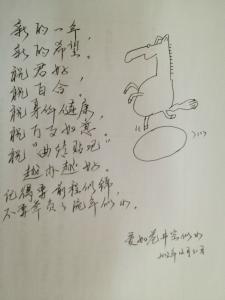 新的一年，
新的希望。
祝君好，
祝百合。
祝身体健康，
祝万事如意。
祝“曲线贴吧”
越办越好。
记得要前程似锦，
不要辜负了流年似水。
2012年12月31日